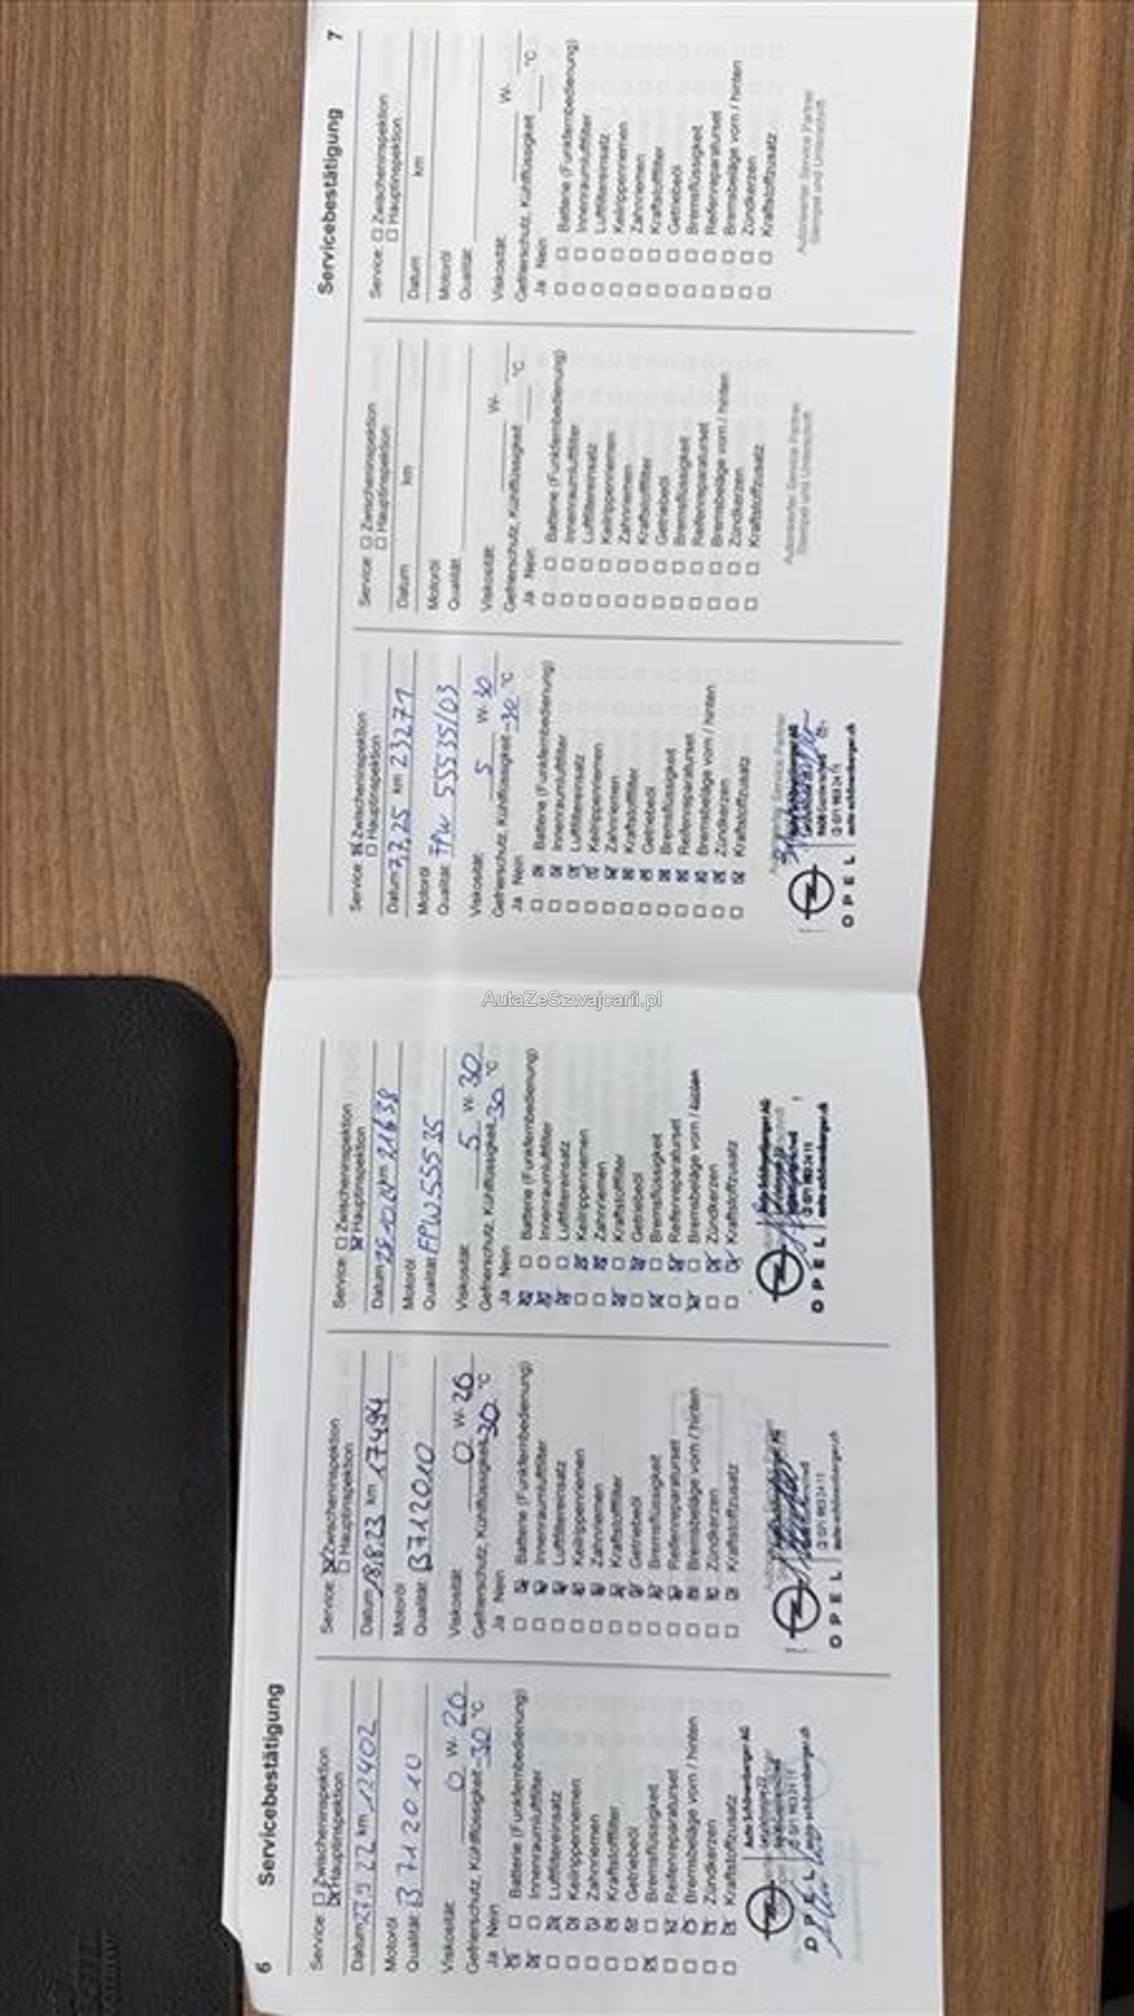 6 Servicebestätigung
Service: ☐ Zwischeninspektion
☒ Hauptinspektion
Datum 27.9.22 km 12402
Motoröl
Qualität: B712010
Viskosität: 0 W- 20
Gefrierschutz, Kühlflüssigkeit -30 °C
Ja Nein
☒ ☐ Batterie (Funkfernbedienung)
☒ ☐ Innenraumluftfilter
☐ ☒ Luftfiltereinsatz
☐ ☒ Keilrippenriemen
☐ ☒ Zahnriemen
☐ ☒ Kraftstofffilter
☐ ☒ Getriebeöl
☒ ☐ Bremsflüssigkeit
☐ ☒ Reifenreparaturset
☐ ☒ Bremsbeläge vorn / hinten
☐ ☒ Zündkerzen
☐ ☒ Kraftstoffzusatz
Auto Schönenberger AG
OPEL
auto-schönenberger.ch
Service: ☒ Zwischeninspektion
☐ Hauptinspektion
Datum 18.8.23 km 17494
Motoröl
Qualität: B712010
Viskosität: 0 W- 20
Gefrierschutz, Kühlflüssigkeit -30 °C
Ja Nein
☐ ☒ Batterie (Funkfernbedienung)
☐ ☒ Innenraumluftfilter
☐ ☒ Luftfiltereinsatz
☐ ☒ Keilrippenriemen
☐ ☒ Zahnriemen
☐ ☒ Kraftstofffilter
☐ ☒ Getriebeöl
☐ ☒ Bremsflüssigkeit
☐ ☒ Reifenreparaturset
☐ ☒ Bremsbeläge vorn / hinten
☐ ☒ Zündkerzen
☐ ☒ Kraftstoffzusatz
OPEL
auto-schönenberger.ch
Service: ☐ Zwischeninspektion
☒ Hauptinspektion
Datum km 21638
Motoröl
Qualität: FPW55535
Viskosität: 5 W- 30
Gefrierschutz, Kühlflüssigkeit -30 °C
Ja Nein
☒ ☐ Batterie (Funkfernbedienung)
☒ ☐ Innenraumluftfilter
☒ ☐ Luftfiltereinsatz
☐ ☒ Keilrippenriemen
☐ ☒ Zahnriemen
☒ ☐ Kraftstofffilter
☐ ☒ Getriebeöl
☒ ☐ Bremsflüssigkeit
☐ ☒ Reifenreparaturset
☒ ☐ Bremsbeläge vorn / hinten
☐ ☒ Zündkerzen
☐ ☒ Kraftstoffzusatz
OPEL
auto-schönenberger.ch
AutaZeSzwajcarii.pl
Servicebestätigung 7
Service: ☒ Zwischeninspektion
☐ Hauptinspektion
Datum 7.7.25 km 23271
Motoröl
Qualität: FPW 55535/03
Viskosität: 5 W- 30
Gefrierschutz, Kühlflüssigkeit -30 °C
Ja Nein
☐ ☒ Batterie (Funkfernbedienung)
☐ ☒ Innenraumluftfilter
☐ ☒ Luftfiltereinsatz
☐ ☒ Keilrippenriemen
☐ ☒ Zahnriemen
☐ ☒ Kraftstofffilter
☐ ☒ Getriebeöl
☐ ☒ Bremsflüssigkeit
☐ ☒ Reifenreparaturset
☐ ☒ Bremsbeläge vorn / hinten
☐ ☒ Zündkerzen
☐ ☒ Kraftstoffzusatz
OPEL
auto-schönenberger.ch
Service: ☐ Zwischeninspektion
☐ Hauptinspektion
Datum km
Motoröl
Qualität:
Viskosität: W-
Gefrierschutz, Kühlflüssigkeit °C
Ja Nein
☐ ☐ Batterie (Funkfernbedienung)
☐ ☐ Innenraumluftfilter
☐ ☐ Luftfiltereinsatz
☐ ☐ Keilrippenriemen
☐ ☐ Zahnriemen
☐ ☐ Kraftstofffilter
☐ ☐ Getriebeöl
☐ ☐ Bremsflüssigkeit
☐ ☐ Reifenreparaturset
☐ ☐ Bremsbeläge vorn / hinten
☐ ☐ Zündkerzen
☐ ☐ Kraftstoffzusatz
Autorisierter Service Partner
Stempel und Unterschrift
Service: ☐ Zwischeninspektion
☐ Hauptinspektion
Datum km
Motoröl
Qualität:
Viskosität: W-
Gefrierschutz, Kühlflüssigkeit °C
Ja Nein
☐ ☐ Batterie (Funkfernbedienung)
☐ ☐ Innenraumluftfilter
☐ ☐ Luftfiltereinsatz
☐ ☐ Keilrippenriemen
☐ ☐ Zahnriemen
☐ ☐ Kraftstofffilter
☐ ☐ Getriebeöl
☐ ☐ Bremsflüssigkeit
☐ ☐ Reifenreparaturset
☐ ☐ Bremsbeläge vorn / hinten
☐ ☐ Zündkerzen
☐ ☐ Kraftstoffzusatz
Autorisierter Service Partner
Stempel und Unterschrift